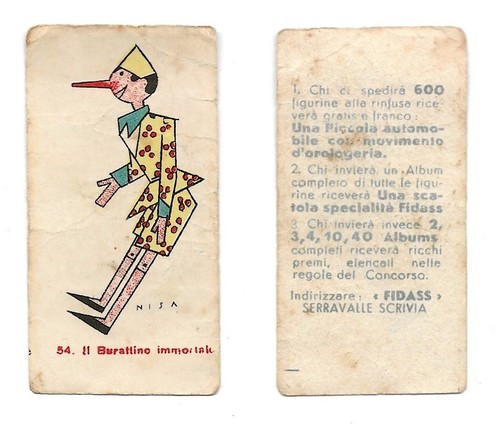 NISA
54. Il Burattino immortale
1. Chi ci spedirà 600
figurine alla rinfusa rice-
verà gratis e franco:
Una Piccola automo-
bile con movimento
d'orologeria.
2. Chi invierà un Album
completo di tutte le figu-
rine riceverà Una sca-
tola specialità Fidass
3. Chi invierà invece 2,
3,4,10,40 Albums
completi riceverà ricchi
premi, elencati nelle
regole del Concorso.
Indirizzare: « FIDASS »
SERRAVALLE SCRIVIA